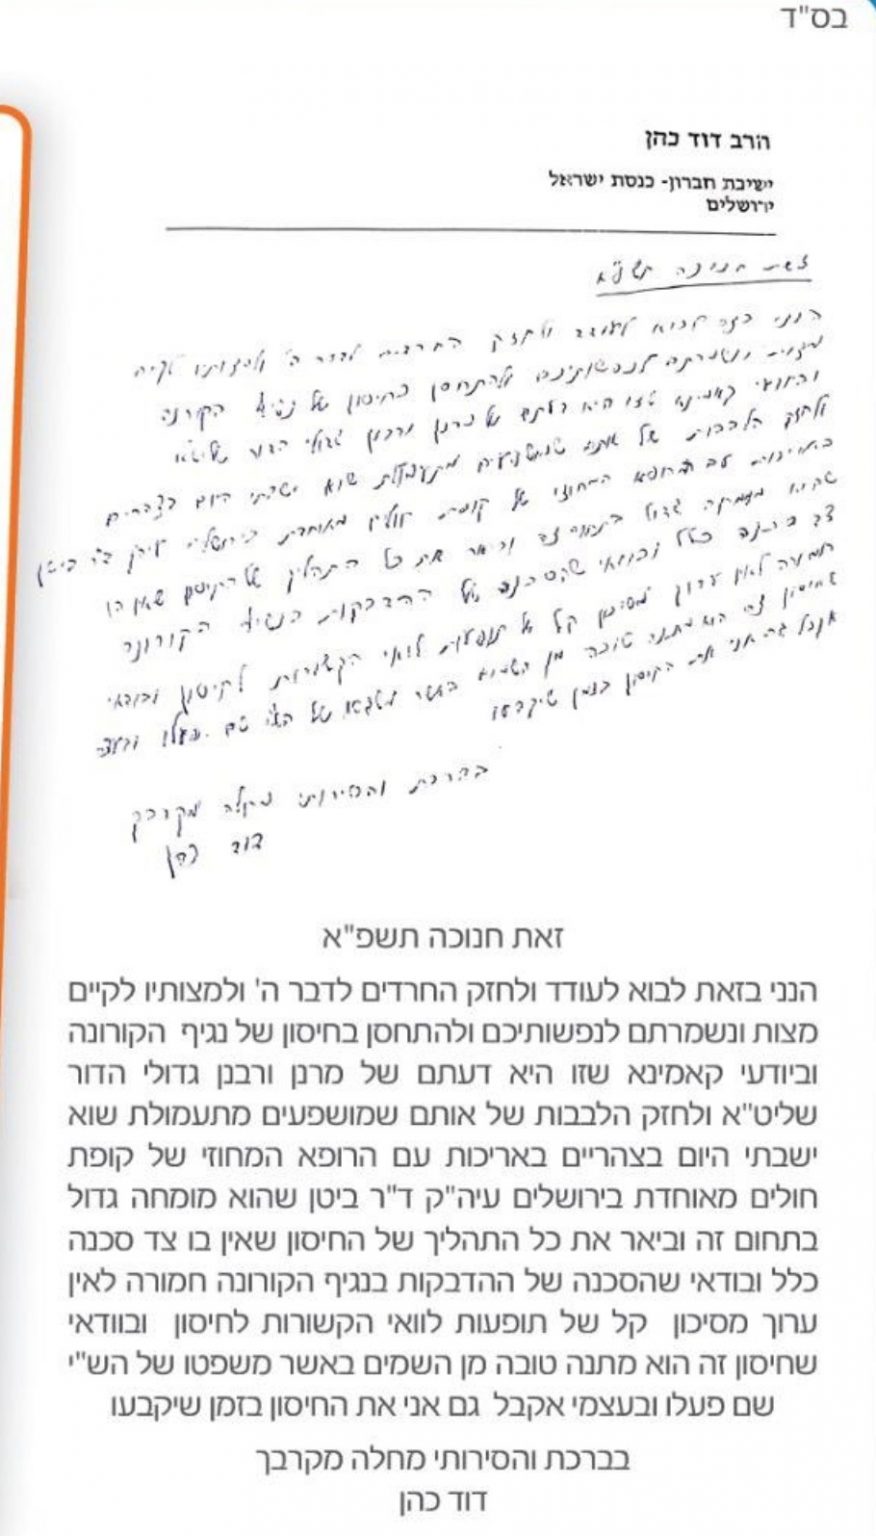 בס"ד
הרב דוד כהן
ישיבת חברון- כנסת ישראל
ירושלים
זאת חנוכה תשפ"א
הנני בזה לבוא לעודד ולחזק החרדים לדבר ה' ולמצותיו לקיים
מצות ונשמרתם לנפשותיכם ולהתחסן בחיסון של נגיף הקורונה
וביודעי קאמינא שזו היא דעתם של מרנן ורבנן גדולי הדור שליט"א
ולחזק הלבבות של אותם שמושפעים מתעמולת שוא ישבתי היום בצהרים
באריכות עם הרופא המחוזי של קופת חולים מאוחדת בירושלים עיה"ק ד"ר ביטן
שהוא מומחה גדול בתחום זה וביאר את כל התהליך של החיסון שאין בו
צד סכנה כלל ובודאי שהסכנה של ההדבקות בנגיף הקורונה
חמורה לאין ערוך מסיכון קל של תופעות לואי הקשורות לחיסון ובודאי
שחיסון זה הוא מתנה טובה מן השמים באשר משפטו של הש"י שם פעלו ובעצמי
אקבל גם אני את החיסון בזמן שיקבעו
בברכת והסירותי מחלה מקרבך
דוד כהן
זאת חנוכה תשפ"א
הנני בזאת לבוא לעודד ולחזק החרדים לדבר ה' ולמצותיו לקיים
מצות ונשמרתם לנפשותיכם ולהתחסן בחיסון של נגיף הקורונה
וביודעי קאמינא שזו היא דעתם של מרנן ורבנן גדולי הדור
שליט"א ולחזק הלבבות של אותם שמושפעים מתעמולת שוא
ישבתי היום בצהריים באריכות עם הרופא המחוזי של קופת
חולים מאוחדת בירושלים עיה"ק ד"ר ביטן שהוא מומחה גדול
בתחום זה וביאר את כל התהליך של החיסון שאין בו צד סכנה
כלל ובודאי שהסכנה של ההדבקות בנגיף הקורונה חמורה לאין
ערוך מסיכון קל של תופעות לוואי הקשורות לחיסון ובוודאי
שחיסון זה הוא מתנה טובה מן השמים באשר משפטו של הש"י
שם פעלו ובעצמי אקבל גם אני את החיסון בזמן שיקבעו
בברכת והסירותי מחלה מקרבך
דוד כהן